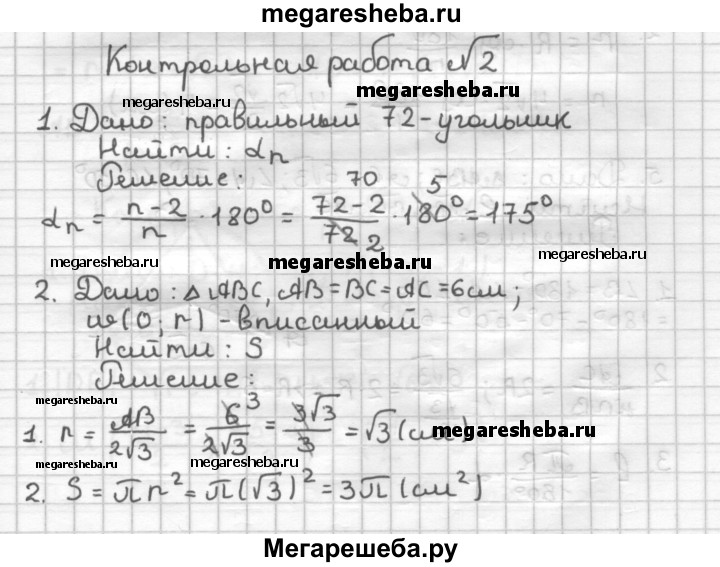 megaresheba.ru
Контрольная работа №2
megaresheba.ru megaresheba.ru
1. Дано: правильный 72-угольник
Найти: αn
Решение:
αn = n-2/n · 180° = 72-2/72 · 180° = 175°
70 5 2
megaresheba.ru megaresheba.ru megaresheba.ru
2. Дано: △ABC, AB=BC=AC=6см;
ω(O; r) - вписанный
Найти: S
Решение:
megaresheba.ru
1. r = AB/2√3 = 6/2√3 = 3√3/3 = √3 (см)
3
megaresheba.ru
megaresheba.ru megaresheba.ru
2. S = πr² = π(√3)² = 3π (см²)
Мегарешеба.ру